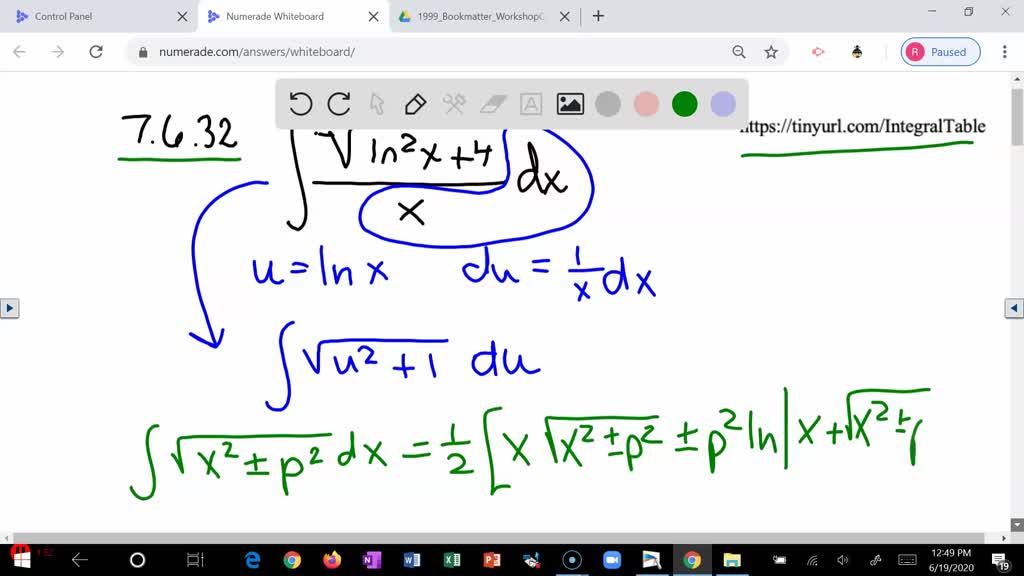 Control Panel
Numerade Whiteboard
1999_Bookmatter_Workshop
numerade.com/answers/whiteboard/
R Paused
7.6.32
∫ √(ln²x+4) / x dx
https://tinyurl.com/IntegralTable
u = ln x du = 1/x dx
∫ √(u² + 1) du
∫ √(x² ± p²) dx = 1/2 [ x √(x² ± p²) ± p² ln | x + √(x² ±
12:49 PM
6/19/2020
19